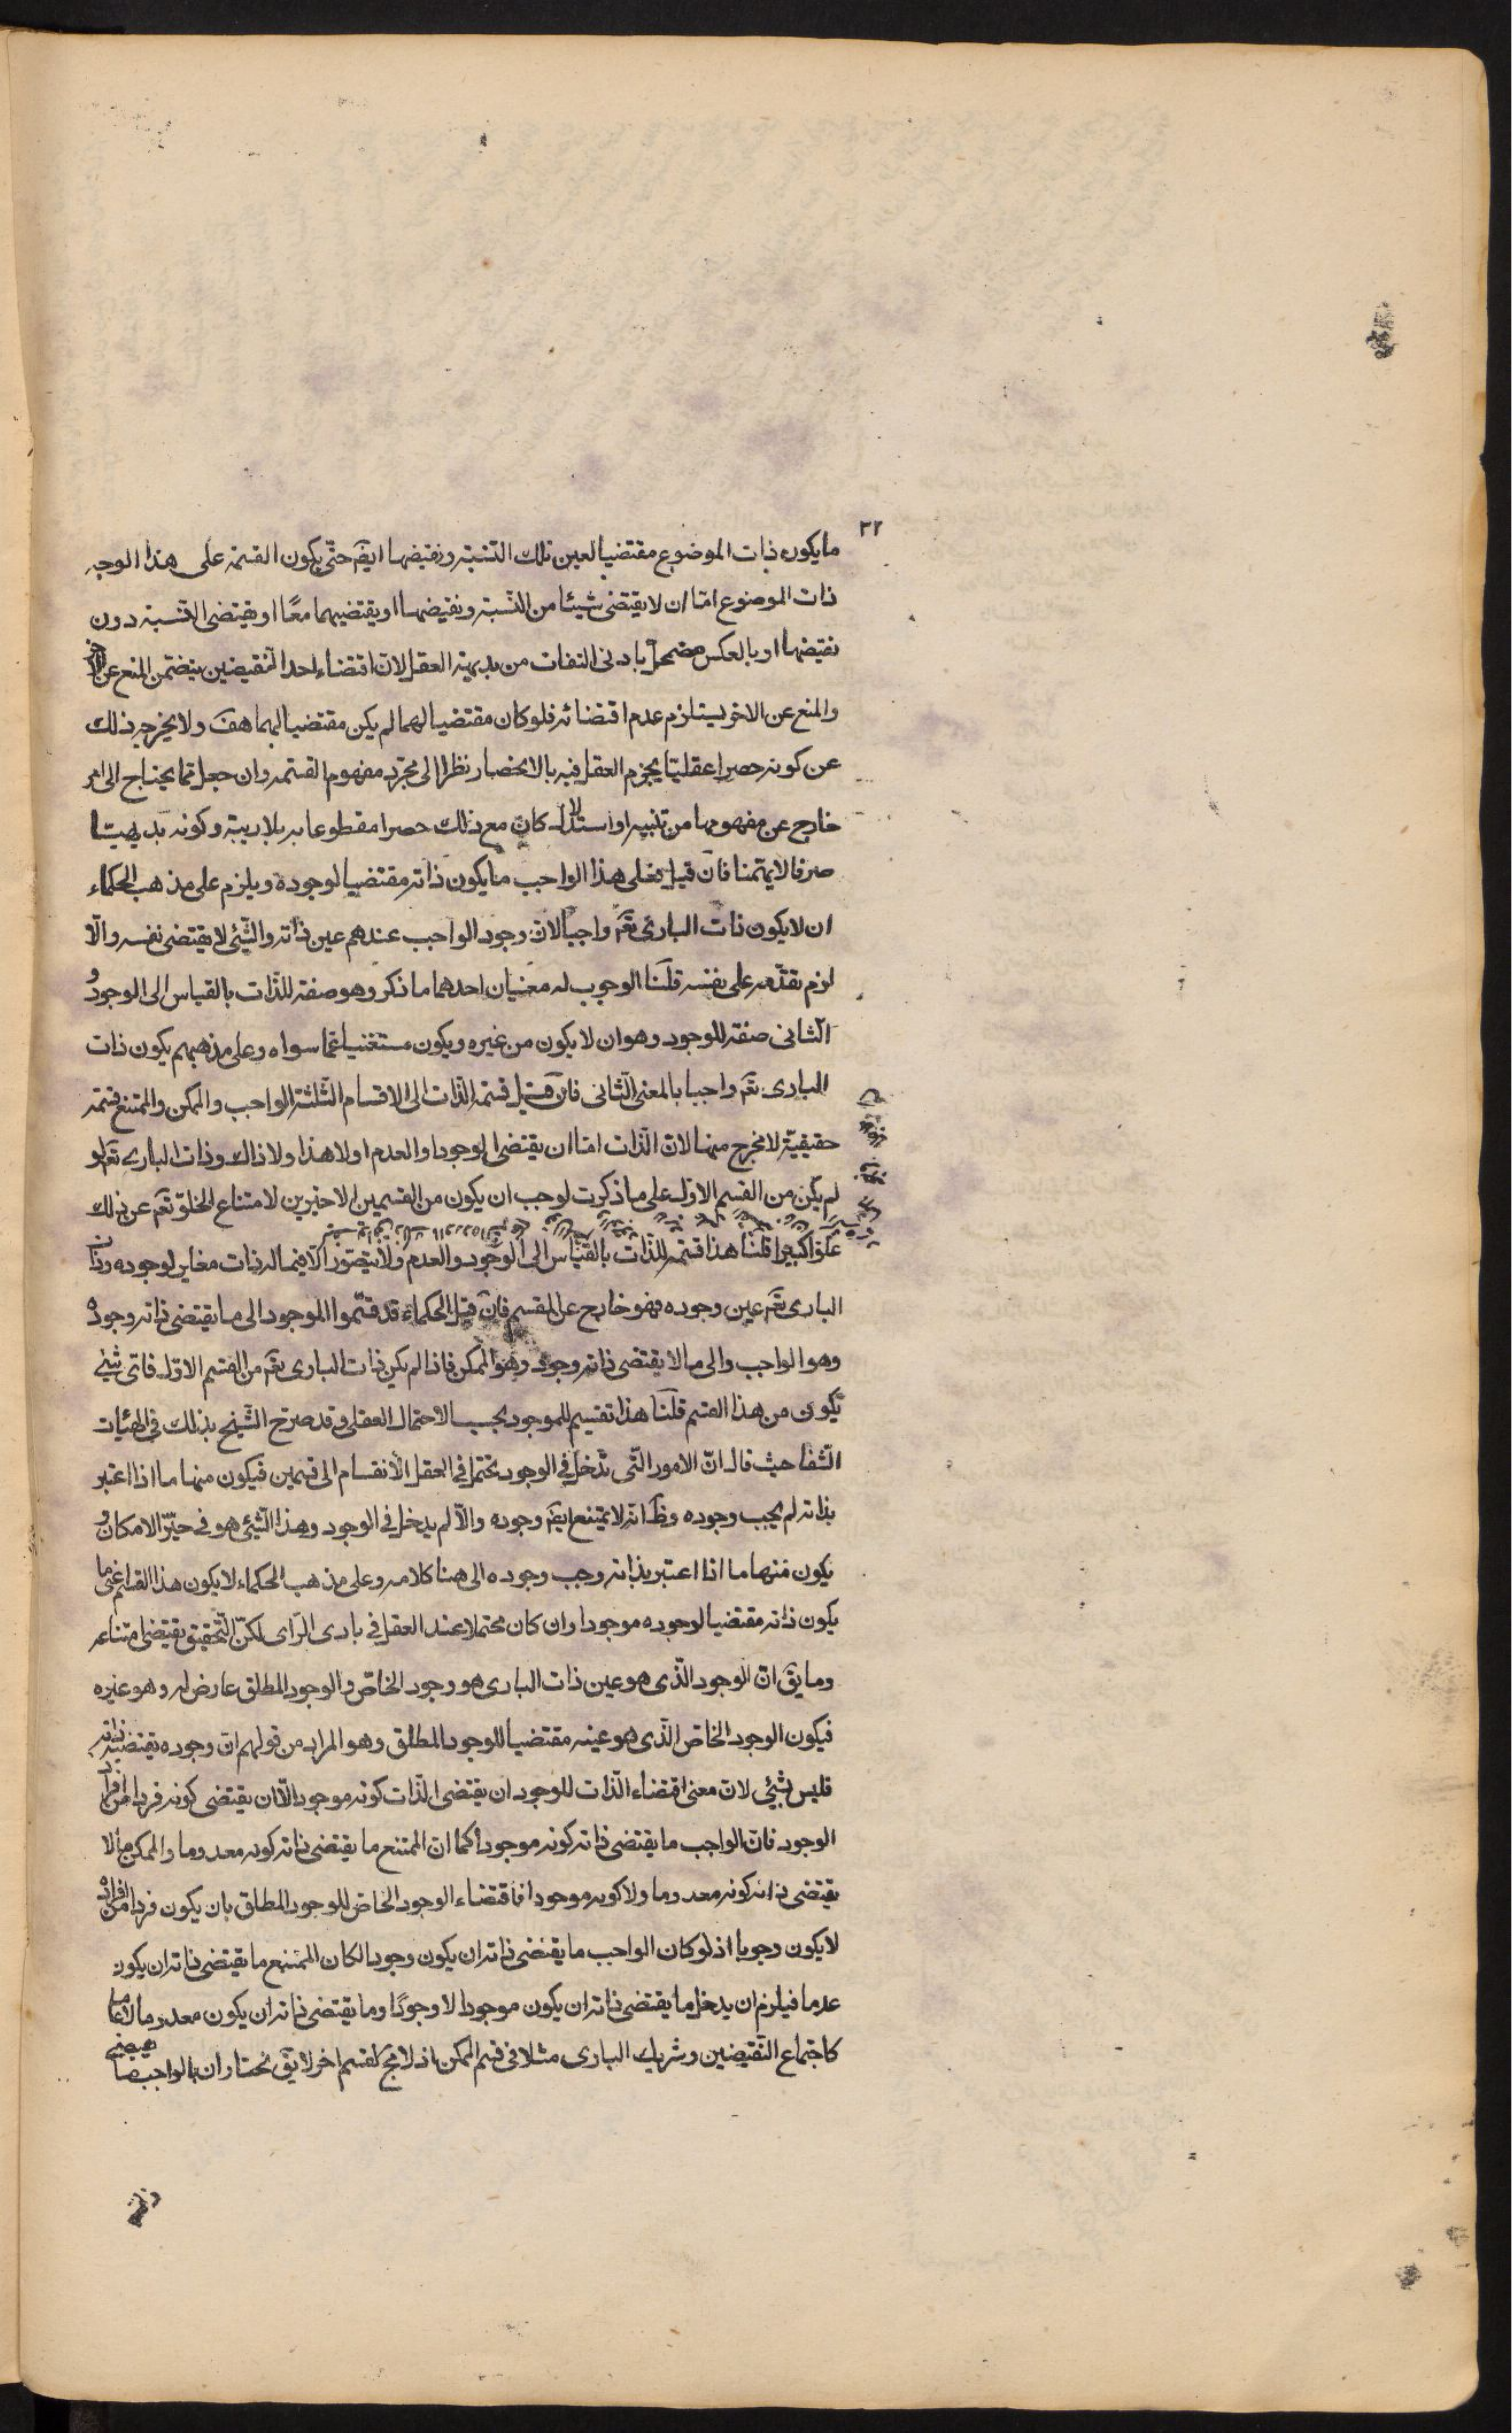 ٣٢
ما يكون ذات الموضوع مقتضيا لعين تلك النسبة ونقيضها ايضَ حتّى يكون القسمة على هذا الوجه
ذات الموضوع امّا ان لا يقتضى شيئا من النسبة ونقيضها او يقتضيهما معًا او يقتضى النسبة دون
نقيضها او بالعكس مضمحلّ بادنى التفات من بديهة العقل لانّ اقتضاء احد النقيضين يتضمن المنع عن الاخر
والمنع عن الاخر يستلزم عدم اقتضائه فلو كان مقتضيا لهما لم يكن مقتضيا لهما هفَ ولا يخرجه ذلك
عن كونه حصرا عقليّا يجزم العقل فيه بالانحصار نظرا الى مجرّد مفهوم القسمة وان جعل مما يحتاج الى امر
خارج عن مفهومها من تنبيه او استدلال كان مع ذلك حصرا مقطوعا به بلا ريبة وكونه بديهيّا
صرفا لا يهمّنا فان قيل فعلى هذا الواجب ما يكون ذاته مقتضيا لوجوده ويلزم على مذهب الحكماء
ان لا يكون ذات البارى تعَ واجبا لانّ وجود الواجب عندهم عين ذاته والشّيئى لا يقتضى نفسه والّا
لزم تقدّمه على نفسه قلنا الوجوب له معنيان احدهما ما ذكر وهو صفة للذّات بالقياس الى الوجود و
الثّانى صفة للوجود وهو ان لا يكون من غيره ويكون مستغنيا عمّا سواه وعلى مذهبهم يكون ذات
البارى تعَ واجبا بالمعنى الثّانى فان قيل قسمة الذّات الى الاقسام الثّلثة الواجب والممكن والممتنع قسمة
حقيقيّة لا مخرج منها لانّ الذّات امّا ان يقتضى الوجود او العدم او لا هذا ولا ذاك وذات البارى تعَ لو
لم يكن من القسم الاوّل على ما ذكرت لوجب ان يكون من القسمين الاخيرين لامتناع الخلوّ تعَ عن ذلك
علوّا كبيرا قلنا هذا قسمة للذّات بالقياس الى الوجود والعدم ولا يتصوّر الّا فيما له ذات مغاير لوجوده وذات
البارى تعَ عين وجوده فهو خارج عن المقسم فان قيل الحكماء قد قسّموا الموجود الى ما يقتضى ذاته وجوده
وهو الواجب والى ما لا يقتضى ذاته وجوده وهو الممكن فاذا لم يكن ذات البارى تعَ من القسم الاوّل فاىّ شيئى
يكون من هذا القسم قلنا هذا تقسيم للموجود بحسب الاحتمال العقلى وقد صرّح الشّيخ بذلك فى الهيات
الشّفا حيث قال انّ الامور الّتى تدخل فى الوجود يحتمل فى العقل الانقسام الى قسمين فيكون منها ما اذا اعتبر
بذاته لم يجب وجوده وظَ انّه لا يمتنع ايضَ وجوده والّا لم يدخل فى الوجود وهذا الشّيئى هو فى حيّز الامكان و
يكون منها ما اذا اعتبر بذاته وجب وجوده الى هنا كلامه وعلى مذهب الحكماء لا يكون هذا القسم اعنى ما
يكون ذاته مقتضيا لوجوده موجودا وان كان محتملا عند العقل فى بادى الرّاى لكنّ التّحقيق يقتضى امتناعه
وما يقَ انّ الوجود الّذى هو عين ذات البارى هو وجود الخاصّ والوجود المطلق عارض له وهو غيره
فيكون الوجود الخاصّ الّذى هو عينه مقتضيا للوجود المطلق وهو المراد من قولهم انّ وجوده يقتضيه ذاته
فليس بشيئى لانّ معنى اقتضاء الذّات للوجود ان يقتضى الذّات كونه موجودا لا ان يقتضى كونه فردا من افراد
الوجود فانّ الواجب ما يقتضى ذاته كونه موجودا كما انّ الممتنع ما يقتضى ذاته كونه معدوما والممكن ما لا
يقتضى ذاته كونه معدوما ولا كونه موجودا فاقتضاء الوجود الخاصّ للوجود المطلق بان يكون فردا من افراده
لا يكون وجوبا اذ لو كان الواجب ما يقتضى ذاته ان يكون وجودا لكان الممتنع ما يقتضى ذاته ان يكون
عدما فيلزم ان يدخل ما يقتضى ذاته ان يكون موجودا لا وجودًا وما يقتضى ذاته ان يكون معدوما لا عدما
كاجتماع النّقيضين وشريك البارى مثلا فى قسم الممكن اذ لا مجَ لقسم اخر لا يقَ نختار ان الواجب ما يقتضى